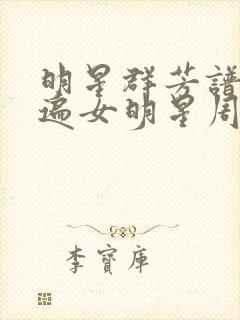 明星群芳譜
遍女明星周
李寶庫